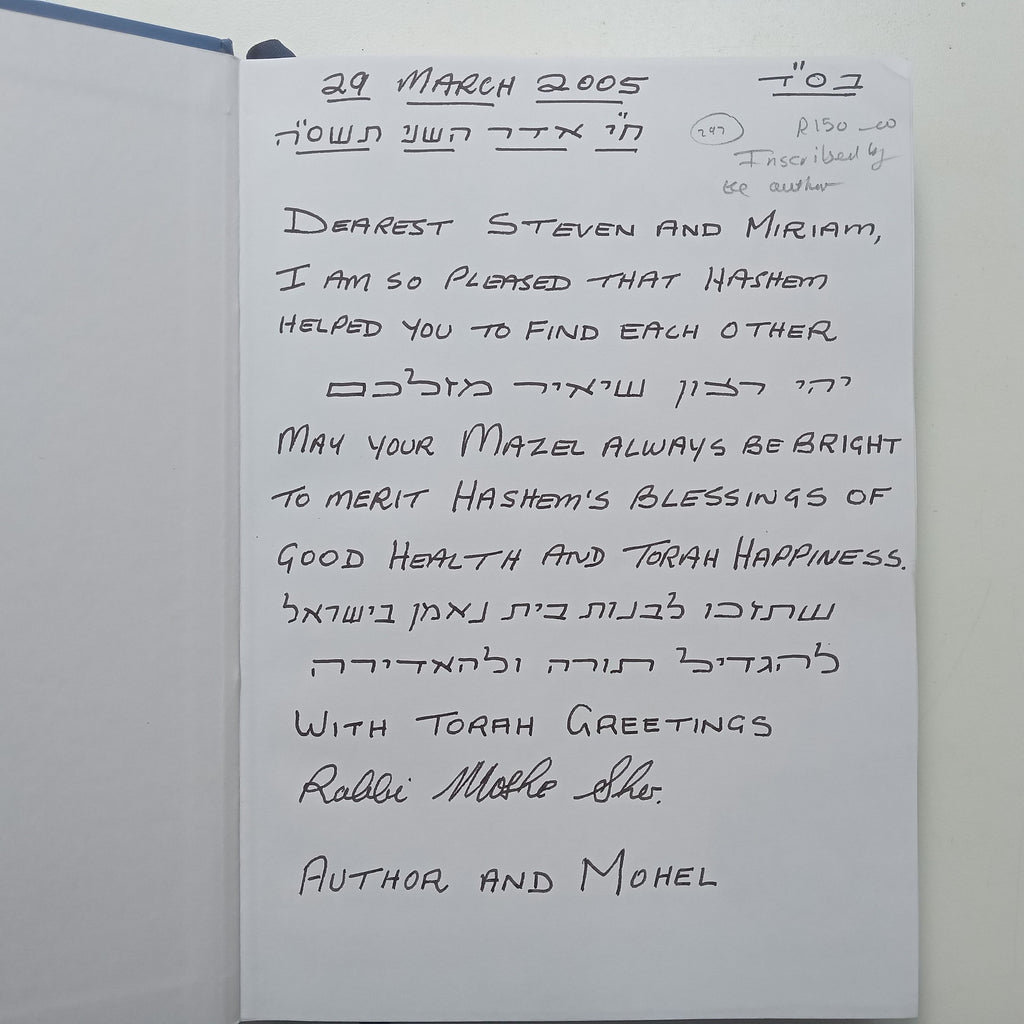 29 MARCH 2005
בס"ד
ח"י אדר השני תשס"ה
297
R150_00
Inscribed by
the author
DEAREST STEVEN AND MIRIAM,
I AM SO PLEASED THAT HASHEM
HELPED YOU TO FIND EACH OTHER
יהי רצון שיאיר מזלכם
MAY YOUR MAZEL ALWAYS BE BRIGHT
TO MERIT HASHEM'S BLESSINGS OF
GOOD HEALTH AND TORAH HAPPINESS.
שתזכו לבנות בית נאמן בישראל
להגדיל תורה ולהאדירה
WITH TORAH GREETINGS
Rabbi Moshe
AUTHOR AND MOHEL